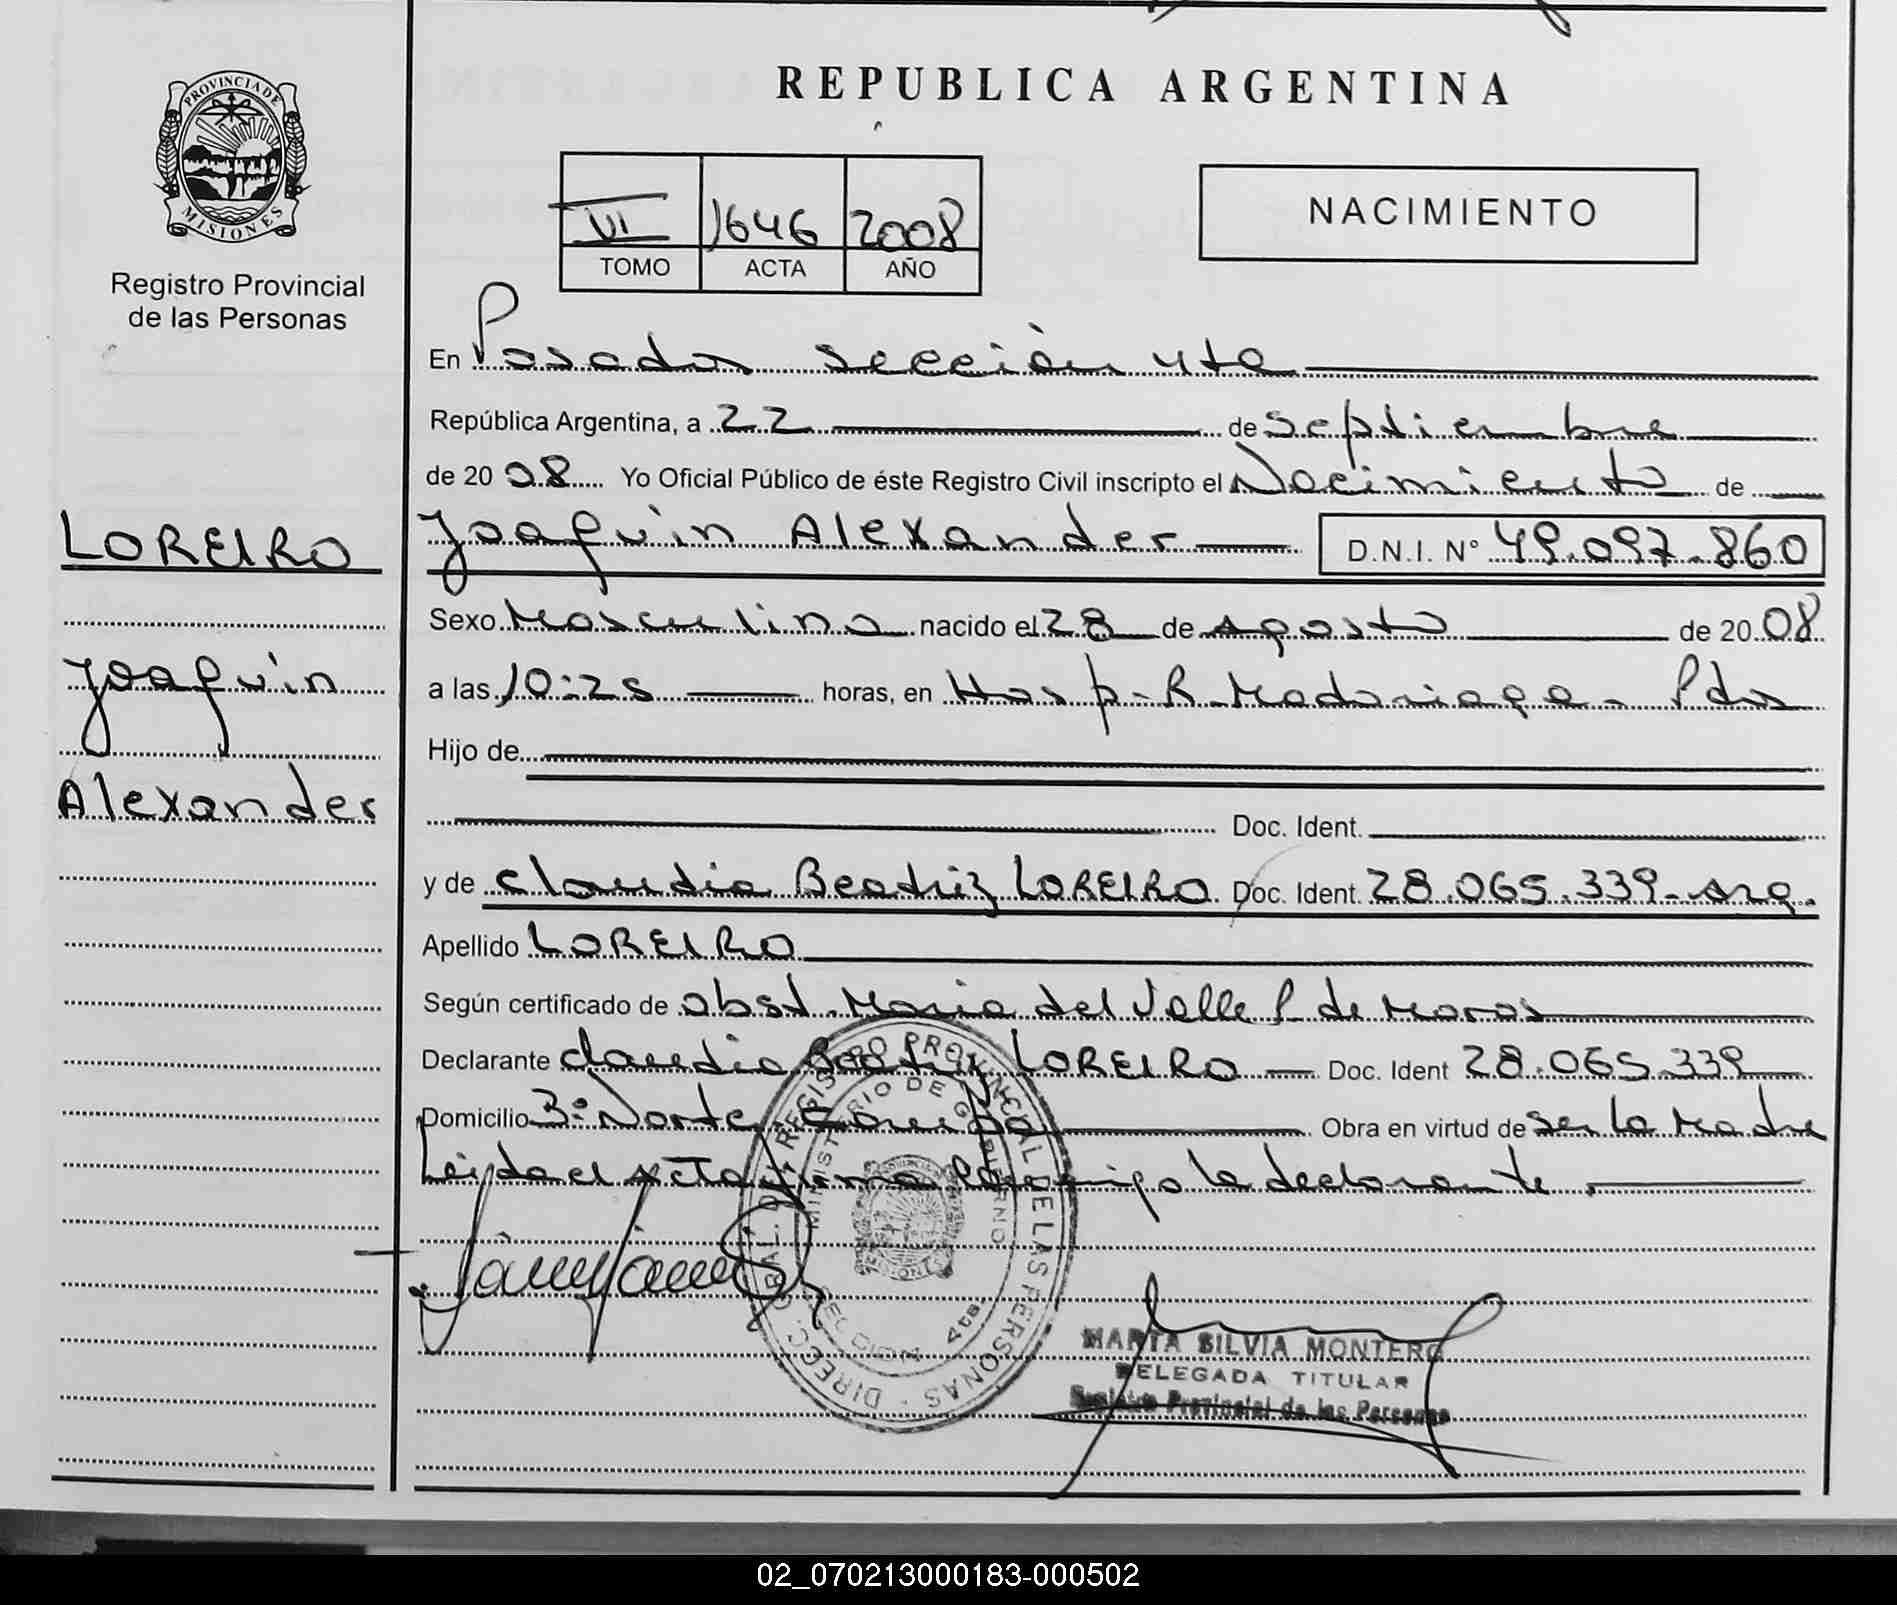 PROVINCIA DE
MISIONES
Registro Provincial
de las Personas
LOREIRO
Joaquin
Alexander
REPUBLICA ARGENTINA
VI 1646 2008
TOMO ACTA AÑO
NACIMIENTO
En Posadas sección 4ta
República Argentina, a 22 de septiembre
de 2008 Yo Oficial Público de éste Registro Civil inscripto el Nacimiento de
Joaquin Alexander D.N.I. Nº 49.097.860
Sexo Masculino nacido el 28 de Agosto de 2008
a las 10:25 horas, en Hosp. R. Madariaga - Pdas
Hijo de
Doc. Ident.
y de Claudia Beatriz LOREIRO Doc. Ident. 28.065.339-Arg.
Apellido LOREIRO
Según certificado de obst. Maria del Valle P. de
Declarante Claudia Beatriz LOREIRO Doc. Ident 28.065.339
Domicilio 3º Norte Garupá Obra en virtud de ser la Madre
Leída el Acta firma conmigo la declarante.
DIRECC. GRAL. DEL REGISTRO PROVINCIAL DE LAS PERSONAS
MINISTERIO DE GOBIERNO
MISIONES
4ta.
MARTA SILVIA MONTERO
DELEGADA TITULAR
Registro Provincial de las Personas
02_070213000183-000502